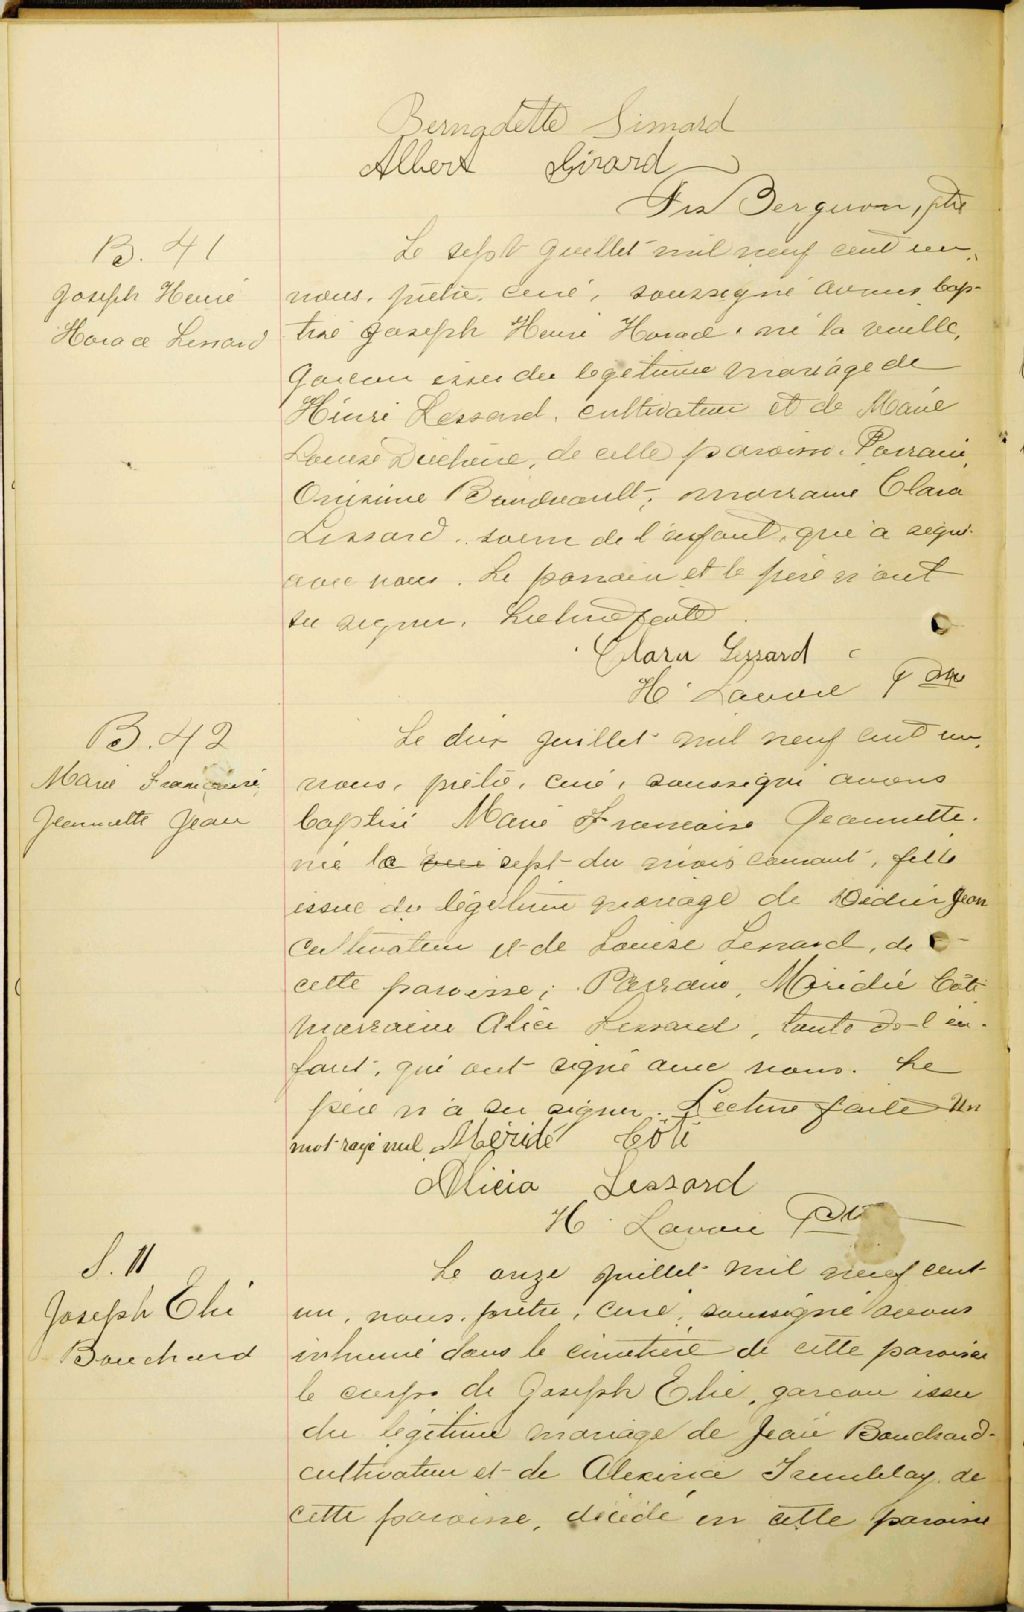 Bernadette Simard
Albert Girard
Frs Bergeron, ptre
B. 41
Joseph Henri
Horace Lessard
Le sept juillet mil neuf cent un,
nous, prêtre, curé, soussigné avons bap-
tisé Joseph Henri Horace, né la veille,
garçon issu du légitime mariage de
Henri Lessard, cultivateur et de Marie
Louise Duchêne, de cette paroisse. Parrain,
Onésime Boudreault; marraine Clara
Lessard, soeur de l'enfant, qui a signé
avec nous. Le parrain et le père n'ont
su signer. Lecture faite.
Clara Lessard
H. Lavoie Ptre
B. 42
Marie Françoise
Jeannette Jean
Le dix juillet mil neuf cent un,
nous, prêtre, curé, soussigné avons
baptisé Marie Françoise Jeannette,
née le sept du mois courant, fille
issue du légitime mariage de Didier Jean
cultivateur et de Louise Lessard, de
cette paroisse; Parrain, Méridé Côté
marraine Alice Lessard, tante de l'en-
fant, qui ont signé avec nous. Le
père n'a su signer. Lecture faite Un
mot rayé nul. Méridé Côté
Alicia Lessard
H. Lavoie Ptre
S. 11
Joseph Elie
Bouchard
Le onze juillet mil neuf cent
un, nous, prêtre, curé, soussigné avons
inhumé dans le cimetière de cette paroisse
le corps de Joseph Elie, garçon issu
du légitime mariage de Jean Bouchard
cultivateur et de Alexina Tremblay de
cette paroisse, décédé en cette paroisse